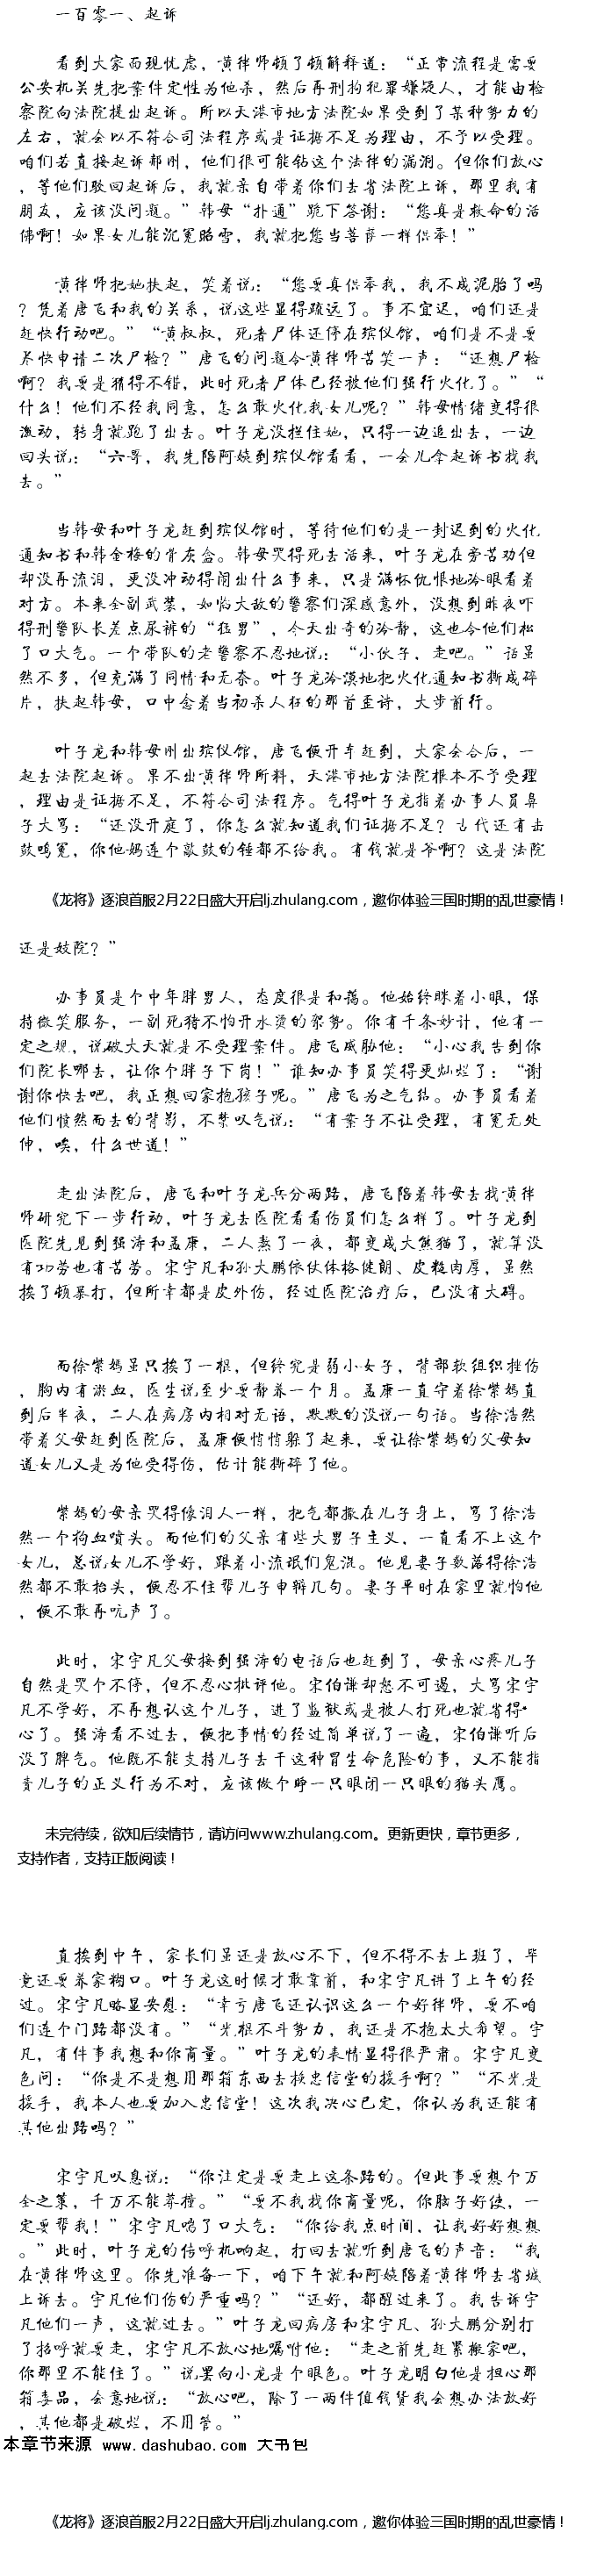 一百零一、起诉
看到大家面现忧虑，黄律师顿了顿解释道：“正常流程是需要
公安机关先把案件定性为他杀，然后再刑拘犯罪嫌疑人，才能由检
察院向法院提出起诉。所以天港市地方法院如果受到了某种势力的
左右，就会以不符合司法程序或是证据不足为理由，不予以受理。
咱们若直接起诉郝刚，他们很可能钻这个法律的漏洞。但你们放心
，等他们驳回起诉后，我就亲自带着你们去省法院上诉，那里我有
朋友，应该没问题。”韩母“扑通”跪下答谢：“您真是救命的活
佛啊！如果女儿能沉冤昭雪，我就把您当菩萨一样供奉！”
黄律师把她扶起，笑着说：“您要真供奉我，我不成泥胎了吗
？凭着唐飞和我的关系，说这些显得疏远了。事不宜迟，咱们还是
赶快行动吧。”“黄叔叔，死者尸体还停在殡仪馆，咱们是不是要
尽快申请二次尸检？”唐飞的问题令黄律师苦笑一声：“还想尸检
啊？我要是猜得不错，此时死者尸体已经被他们强行火化了。”“
什么！他们不经我同意，怎么敢火化我女儿呢？”韩母情绪变得很
激动，转身就跑了出去。叶子龙没拦住她，只得一边追出去，一边
回头说：“六哥，我先陪阿姨到殡仪馆看看，一会儿拿起诉书找我
去。”
当韩母和叶子龙赶到殡仪馆时，等待他们的是一封迟到的火化
通知书和韩金梅的骨灰盒。韩母哭得死去活来，叶子龙在旁苦劝但
却没再流泪，更没冲动得闹出什么事来，只是满怀仇恨地冷眼看着
对方。本来全副武装，如临大敌的警察们深感意外，没想到昨夜吓
得刑警队长差点尿裤的“猛男”，今天出奇的冷静，这也令他们松
了口大气。一个带队的老警察不忍地说：“小伙子，走吧。”话虽
然不多，但充满了同情和无奈。叶子龙冷漠地把火化通知书撕成碎
片，扶起韩母，口中念着当初杀人狂的那首歪诗，大步前行。
叶子龙和韩母刚出殡仪馆，唐飞便开车赶到，大家会合后，一
起去法院起诉。果不出黄律师所料，天港市地方法院根本不予受理
，理由是证据不足，不符合司法程序。气得叶子龙指着办事人员鼻
子大骂：“还没开庭了，你怎么就知道我们证据不足？古代还有击
鼓鸣冤，你他妈连个敲鼓的锤都不给我。有钱就是爷啊？这是法院
《龙将》逐浪首服2月22日盛大开启lj.zhulang.com，邀你体验三国时期的乱世豪情！
还是妓院？”
办事员是个中年胖男人，态度很是和蔼。他始终眯着小眼，保
持微笑服务，一副死猪不怕开水烫的架势。你有千条妙计，他有一
定之规，说破大天就是不受理案件。唐飞威胁他：“小心我告到你
们院长哪去，让你个胖子下岗！”谁知办事员笑得更灿烂了：“谢
谢你快去吧，我正想回家抱孩子呢。”唐飞为之气结。办事员看着
他们愤然而去的背影，不禁叹气说：“有案子不让受理，有冤无处
伸，唉，什么世道！”
走出法院后，唐飞和叶子龙兵分两路，唐飞陪着韩母去找黄律
师研究下一步行动，叶子龙去医院看看伤员们怎么样了。叶子龙到
医院先见到强涛和孟康，二人熬了一夜，都变成大熊猫了，就算没
有功劳也有苦劳。宋宇凡和孙大鹏依仗体格健朗、皮糙肉厚，虽然
挨了顿暴打，但所幸都是皮外伤，经过医院治疗后，已没有大碍。
而徐紫嫣虽只挨了一棍，但终究是弱小女子，背部软组织挫伤
，胸内有淤血，医生说至少要静养一个月。孟康一直守着徐紫嫣直
到后半夜，二人在病房内相对无语，默默的没说一句话。当徐浩然
带着父母赶到医院后，孟康便悄悄躲了起来，要让徐紫嫣的父母知
道女儿又是为他受得伤，估计能撕碎了他。
紫嫣的母亲哭得像泪人一样，把气都撒在儿子身上，骂了徐浩
然一个狗血喷头。而他们的父亲有些大男子主义，一直看不上这个
女儿，总说女儿不学好，跟着小流氓们鬼混。他见妻子数落得徐浩
然都不敢抬头，便忍不住帮儿子申辩几句。妻子平时在家里就怕他
，便不敢再吭声了。
此时，宋宇凡父母接到强涛的电话后也赶到了，母亲心疼儿子
自然是哭个不停，但不忍心批评他。宋伯谦却怒不可遏，大骂宋宇
凡不学好，不再想认这个儿子，进了监狱或是被人打死也就省得
心了。强涛看不过去，便把事情的经过简单说了一遍，宋伯谦听后
没了脾气。他既不能支持儿子去干这种冒生命危险的事，又不能指
责儿子的正义行为不对，应该做个睁一只眼闭一只眼的猫头鹰。
未完待续，欲知后续情节，请访问www.zhulang.com。更新更快，章节更多，
支持作者，支持正版阅读！
直挨到中午，家长们虽还是放心不下，但不得不去上班了，毕
竟还要养家糊口。叶子龙这时候才敢靠前，和宋宇凡讲了上午的经
过。宋宇凡略显安慰：“幸亏唐飞还认识这么一个好律师，要不咱
们连个门路都没有。”“光棍不斗势力，我还是不抱太大希望。宇
凡，有件事我想和你商量。”叶子龙的表情显得很严肃。宋宇凡变
色问：“你是不是想用那箱东西去换忠信堂的援手啊？”“不光是
援手，我本人也要加入忠信堂！这次我决心已定，你认为我还能有
其他出路吗？”
宋宇凡叹息说：“你注定是要走上这条路的。但此事要想个万
全之策，千万不能莽撞。”“要不我找你商量呢，你脑子好使，一
定要帮我！”宋宇凡喘了口大气：“你给我点时间，让我好好想想
。”此时，叶子龙的传呼机响起，打回去就听到唐飞的声音：“我
在黄律师这里。你先准备一下，咱下午就和阿姨陪着黄律师去省城
上诉去。宇凡他们伤的严重吗？”“还好，都醒过来了。我告诉宇
凡他们一声，这就过去。”叶子龙回病房和宋宇凡、孙大鹏分别打
了招呼就要走，宋宇凡不放心地嘱咐他：“走之前先赶紧搬家吧，
你那里不能住了。”说罢向小龙是个眼色。叶子龙明白他是担心那
箱毒品，会意地说：“放心吧，除了一两件值钱货我会想办法放好
，其他都是破烂，不用管。”
本章节来源 www.dashubao.com 大书包
《龙将》逐浪首服2月22日盛大开启lj.zhulang.com，邀你体验三国时期的乱世豪情！